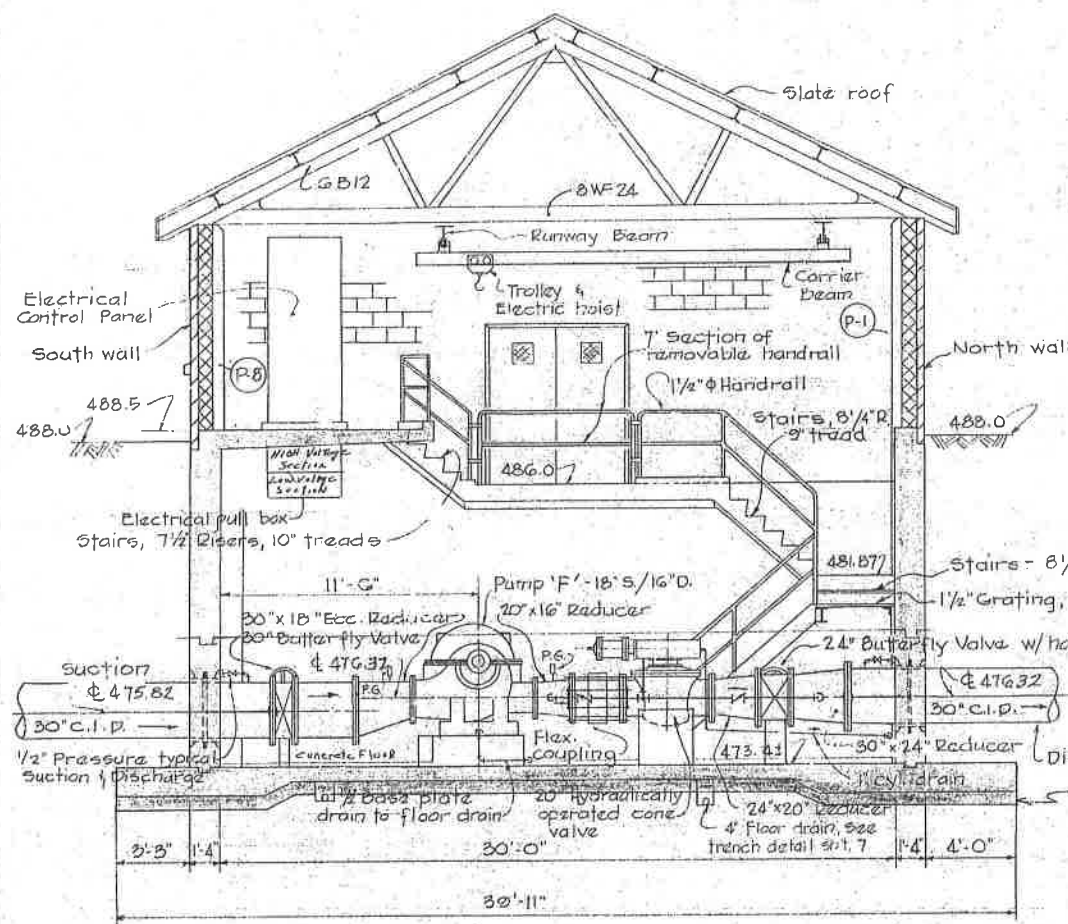 Slate roof
6B12
8WF24
Runway Beam
Carrier
Beam
Trolley &
Electric hoist
Electrical
Control Panel
South wall
P-8
P-1
7' Section of
removable handrail
1½" Φ Handrail
North wall
488.5
488.0
488.0
Stairs, 8¼" R,
9" tread
486.0
HIGH Voltage
Section
Low Voltage
Section
Electrical pull box
Stairs, 7½ Risers, 10" treads
481.87
Stairs - 8
1½" Grating,
11'-6"
Pump 'F' - 18" S./16" D.
20" x 16" Reducer
30" x 18" Ecc. Reducer
30" Butterfly Valve
℄ 476.32
P.G.
P.G.
24" Butterfly Valve w/ha
Suction
℄ 475.82
℄ 476.32
30" C.I.D.
30" C.I.D.
1/2" Pressure typical
Suction & Discharge
Concrete Floor
Flex.
coupling
473.41
30" x 24" Reducer
Di
1" cyl. drain
½ Base plate
drain to floor drain
20" Hydraulically
operated cone
valve
24" x 20" Reducer
4" Floor drain, see
trench detail sht. 7
3'-3"
1'-4"
30'-0"
1'-4"
4'-0"
39'-11"